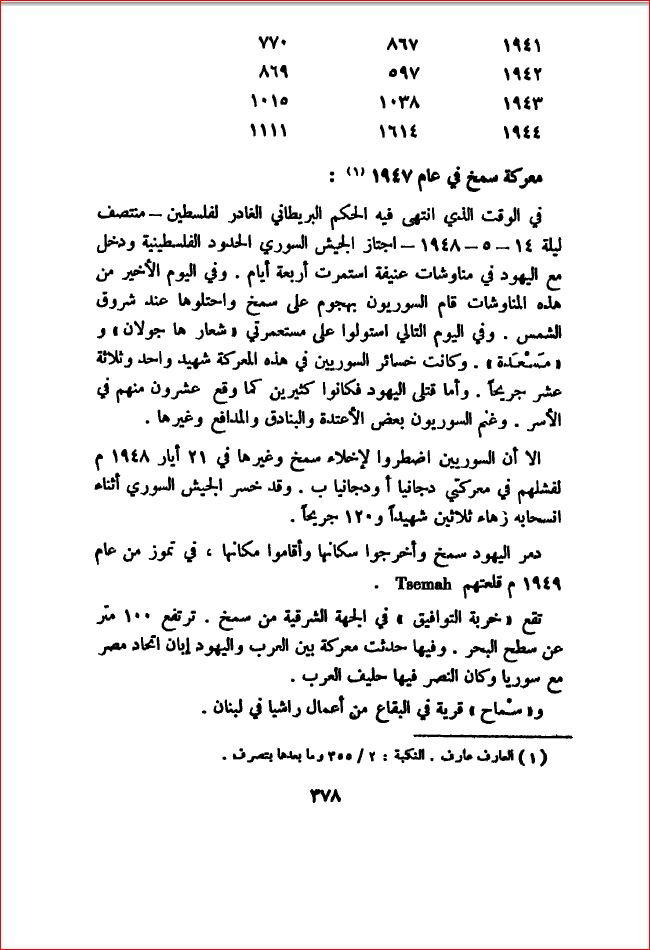 ١٩٤١ ٨٦٧ ٧٧٠
١٩٤٢ ٥٩٧ ٨٦٩
١٩٤٣ ١٠٣٨ ١٠١٥
١٩٤٤ ١٦١٤ ١١١١
معركة سمخ في عام ١٩٤٧ (١) :
في الوقت الذي انتهى فيه الحكم البريطاني الغادر لفلسطين – منتصف
ليلة ١٤ – ٥ – ١٩٤٨ – اجتاز الجيش السوري الحدود الفلسطينية ودخل
مع اليهود في مناوشات عنيفة استمرت أربعة أيام . وفي اليوم الأخير من
هذه المناوشات قام السوريون بهجوم على سمخ واحتلوها عند شروق
الشمس . وفي اليوم التالي استولوا على مستعمرتي « شعار ها جولان » و
« مَسْعَدة » . وكانت خسائر السوريين في هذه المعركة شهيد واحد وثلاثة
عشر جريحاً . وأما قتلى اليهود فكانوا كثيرين كما وقع عشرون منهم في
الأسر . وغنم السوريون بعض الأعتدة والبنادق والمدافع وغيرها .
الا أن السوريين اضطروا لإخلاء سمخ وغيرها في ٢١ أيار ١٩٤٨ م
لفشلهم في معركتي دجانيا أ ودجانيا ب . وقد خسر الجيش السوري أثناء
انسحابه زهاء ثلاثين شهيداً و ١٢٠ جريحاً .
دمر اليهود سمخ وأخرجوا سكانها وأقاموا مكانها ، في تموز من عام
١٩٤٩ م قلعتهم Tsemah .
تقع « خربة التوافيق » في الجهة الشرقية من سمخ . ترتفع ١٠٠ متر
عن سطح البحر . وفيها حدثت معركة بين العرب واليهود إبان اتحاد مصر
مع سوريا وكان النصر فيها حليف العرب .
و « سْماح » قرية في البقاع من أعمال راشيا في لبنان .
(١) العارف عارف . النكبة : ٢ / ٣٥٥ وما بعدها بتصرف .
٣٧٨